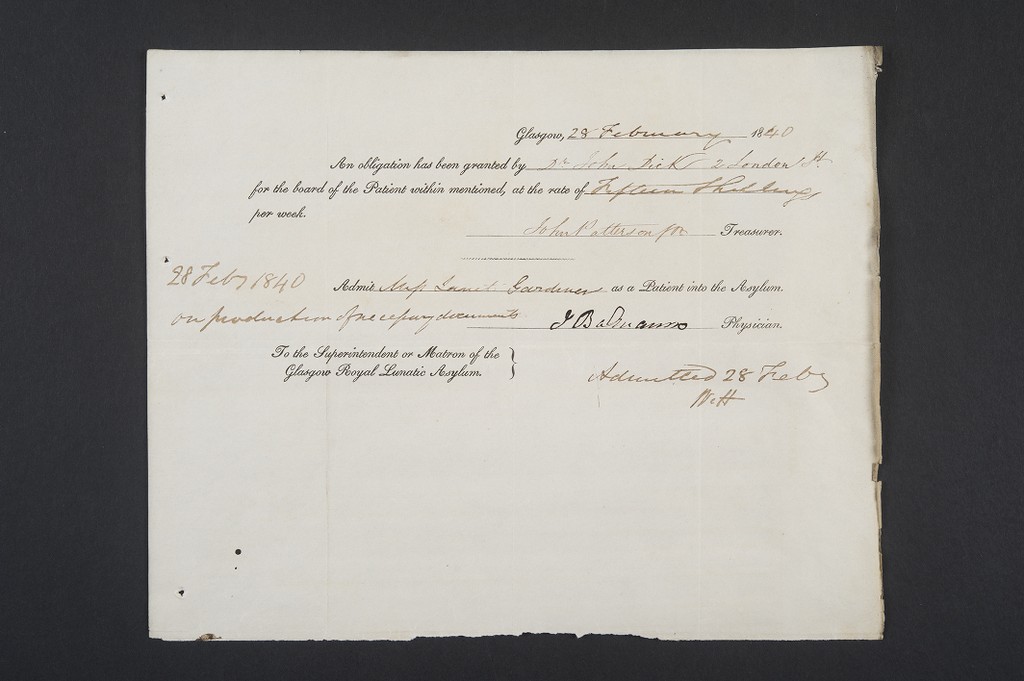 Glasgow, 28 February 1840
An obligation has been granted by Dr John Dick 2 London St.
for the board of the Patient within mentioned, at the rate of Fifteen Shillings
per week.
John Patterson Treasurer.
28 Feby 1840 Admit Miss Janet Gardener as a Patient into the Asylum.
on production of necessary documents J Balmanno Physician.
To the Superintendent or Matron of the
Glasgow Royal Lunatic Asylum.
Admitted 28 Feby